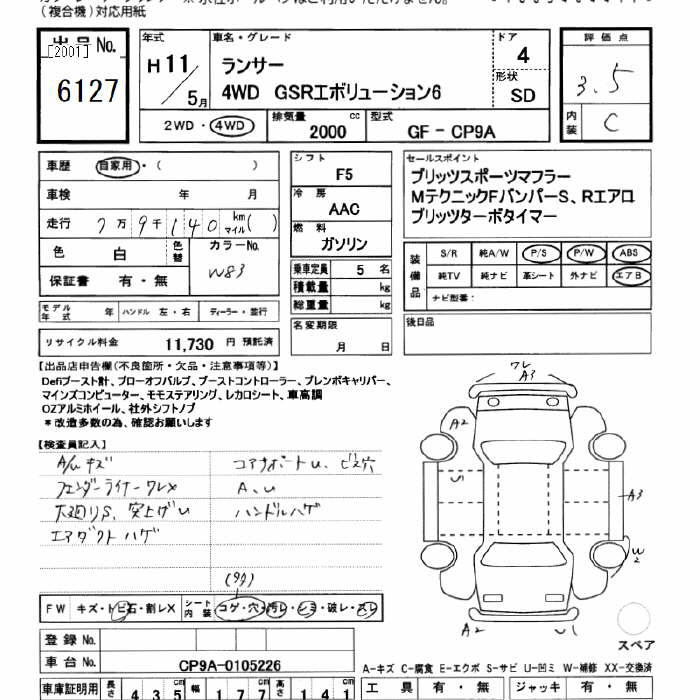 (複合機)対応用紙
出品No.
[2001]
6127
年式
H11/5月
車名・グレード
ランサー
4WD GSRエボリューション6
ドア
4
形状
SD
評価点
3.5
内装
C
2WD・4WD
排気量
2000 cc
型式
GF - CP9A
車歴 自家用・( )
車検 年 月
走行 7万9千140 km マイル( )
色 白 色替
カラーNo.
W83
保証書 有・無
シフト
F5
冷房
AAC
燃料
ガソリン
乗車定員 5 名
積載量 kg
総重量 kg
セールスポイント
ブリッツスポーツマフラー
MテクニックFバンパーS、Rエアロ
ブリッツターボタイマー
装備品
S/R 純A/W P/S P/W ABS
純TV 純ナビ 革シート 外ナビ エアB
ナビ型番:
モデル年式 年 ハンドル 左・右 ディーラー・並行
リサイクル料金 11,730 円 預託済
名変期限
月 日
後日品
【出品店申告欄(不良箇所・欠品・注意事項等)】
Defiブースト計、ブローオフバルブ、ブーストコントローラー、ブレンボキャリパー、
マインズコンピューター、モモステアリング、レカロシート、車高調
OZアルミホイール、社外シフトノブ
*改造多数の為、確認お願いします
【検査員記入】
A/W キズ
フェンダーライナーワレX
下廻りS、突上げU
エアダクトハゲ
コアサポートU、ビス穴
A、U
ハンドルハゲ
ワレ
A3
A2
S
A3
W2
A2
U1
スペア
FW キズ・トビ石・割レX
シート内装 コゲ・穴・汚レ・シミ・破レ・スレ
登録No.
車台No. CP9A-0105226
A-キズ C-腐食 E-エクボ S-サビ U-凹ミ W-補修 XX-交換済
車庫証明用 長さ 435 cm 幅 177 cm 高さ 141 cm
工具 有・無 ジャッキ 有・無